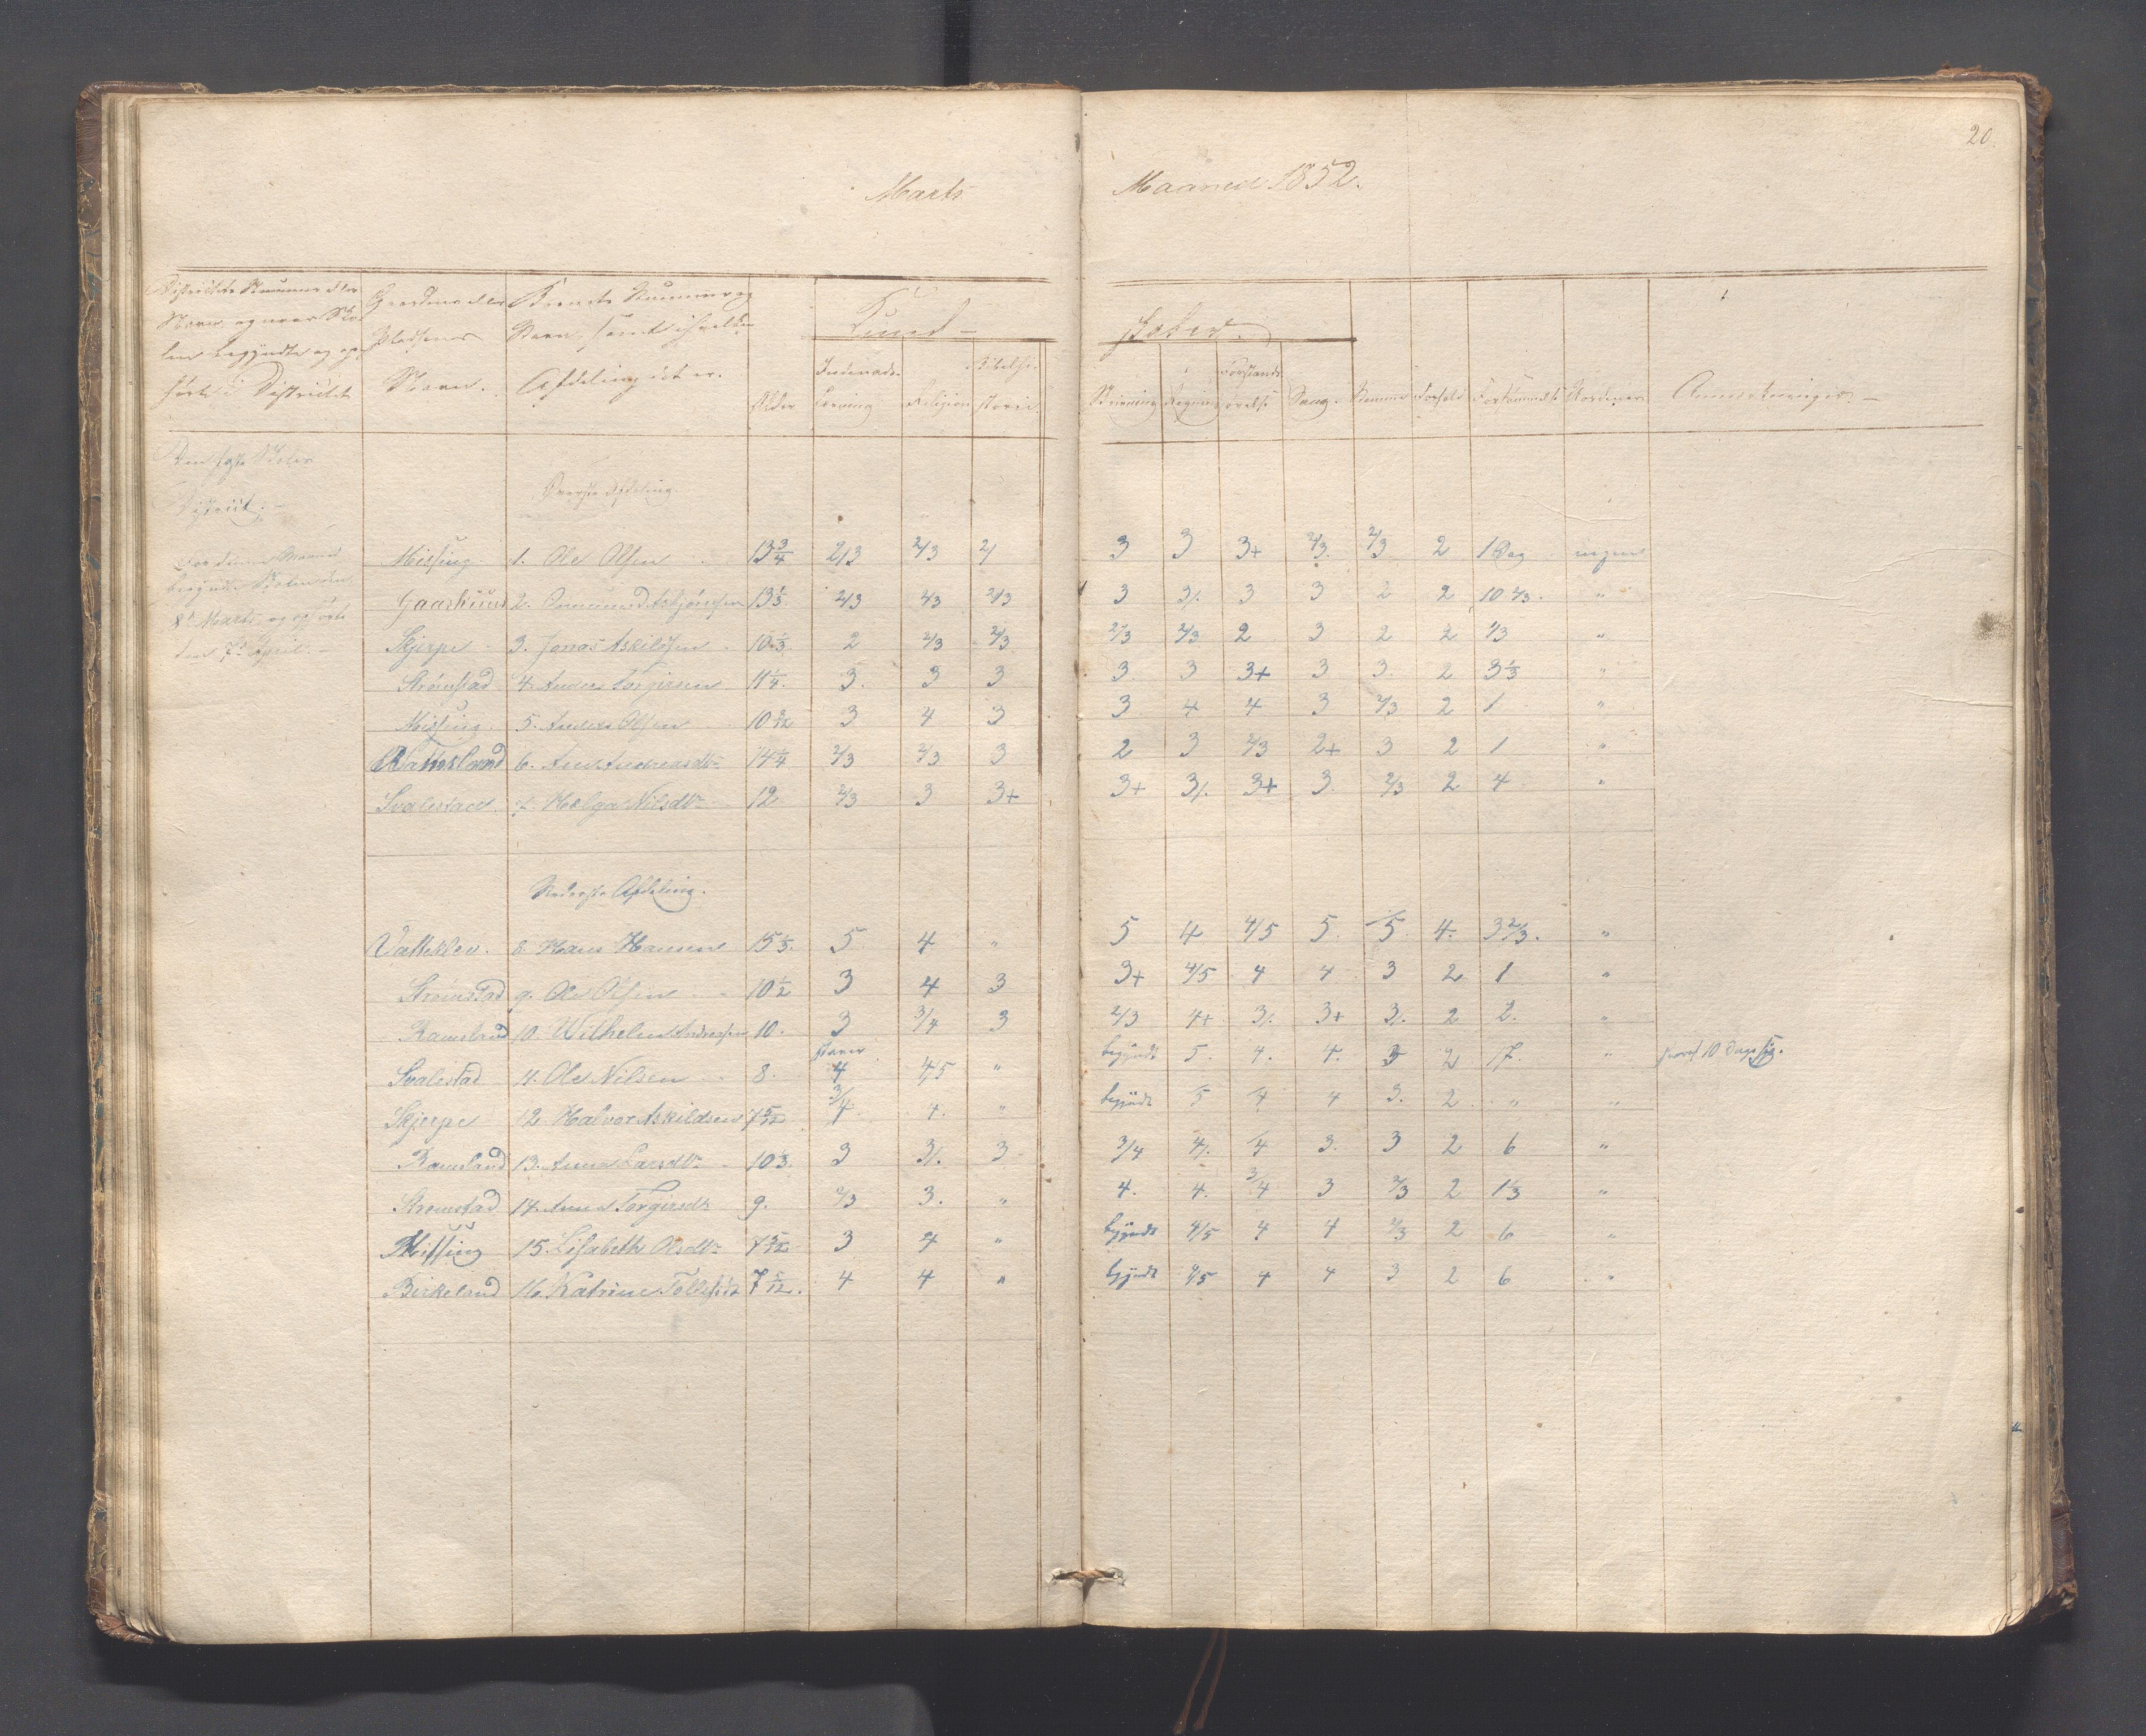 20
Marts Maaned 1852.
Districtets Nummer eller Navn, og naar Skolen begyndte og ophørte i Districtet
Gaardens eller Pladsenes Navn.
Barnets Nummer og Navn, samt i hvilken Afdeling det er.
Alder
Kund-
skaber.
Indenads- Læsning
Religion
Bibelhistorie
Skrivning
Regning
Forstands- øvelse
Sang.
Nemme
Forhold
Forsømmelse
Anmærkninger. -
Skoles
District. -
Øverste Afdeling
For denne Maaned
begyndte Skolen den
8de Marts, og ophørte
den 7de April. -
Missing 1. Ole Olsen 13 3/4 2/3 2/3 2/ 3 3 3+ 2/3. 2/3 2 1 Dag ingen
2. 2/3 2/3 2/3 3 3/. 3 3 2 2 "
Skjerpe 3. Jonas Askildsen 10 1/3 2 2/3 2/3 2/3 2/3 2 3 2 2 1/3 "
Strømstad 4. Anders Torgiersen 11 1/4. 3. 3 3 3. 3 3+ 3 3. 2 3 1/3 "
Missing 5. Anders Olsen 3 4 3 3 4 4 3 2/3 2 1 "
Ramsland 6. Ane Andreasdtr 14 1/4 2/3 2/3 3 2 3 2/3 2+ 3 2 1 "
Svalestad 7. Helga Nilsdtr 12 2/3 3 3+ 3+ 3/. 3+ 3. 2/3 2 4 "
Nederste Afdeling.
Vatteklev. 8. Hans Hansen 15 1/3. 5 4 " 5 4 4/5 5. 5. 4. 3 2/3. "
Strømstad 9. Ole Olsen 10 1/2 3 4 3 3+ 4/5 4 4 3 2 1 "
Ramsland 10. Wilhelm Andreasen 10. 3 3/4 3 2/3 4+ 3/. 3+ 3/. 2 2. "
Svalestad 11. Ole Nilsen 8. staver 4 4/5 " begyndt 5. 4. 4. 3 2 17. " hvoraf 10 Dage syg.
Skjerpe 12. Halvor Askildsen 7 5/12 3/4. 4. " begyndt 5 4 4 3. 2 " "
Ramsland 13. Anna Larsdtr 10 1/3. 3 3/. 3 3/4 4/. 4 3. 3 2 6 "
Strømstad 14. Anna Torgiersdtr 9. 2/3 3. " 4. 4. 3/4 3 2/3 2 1 1/3 "
Missing 15. Lisabeth Olsdtr 7 5/12 3 4 " begyndt 4/5 4 4 2/3 2 6 "
Birkeland 16. Katrine 7 5/12. 4 4 " begyndt 4/5 4 4 3 2 6 "